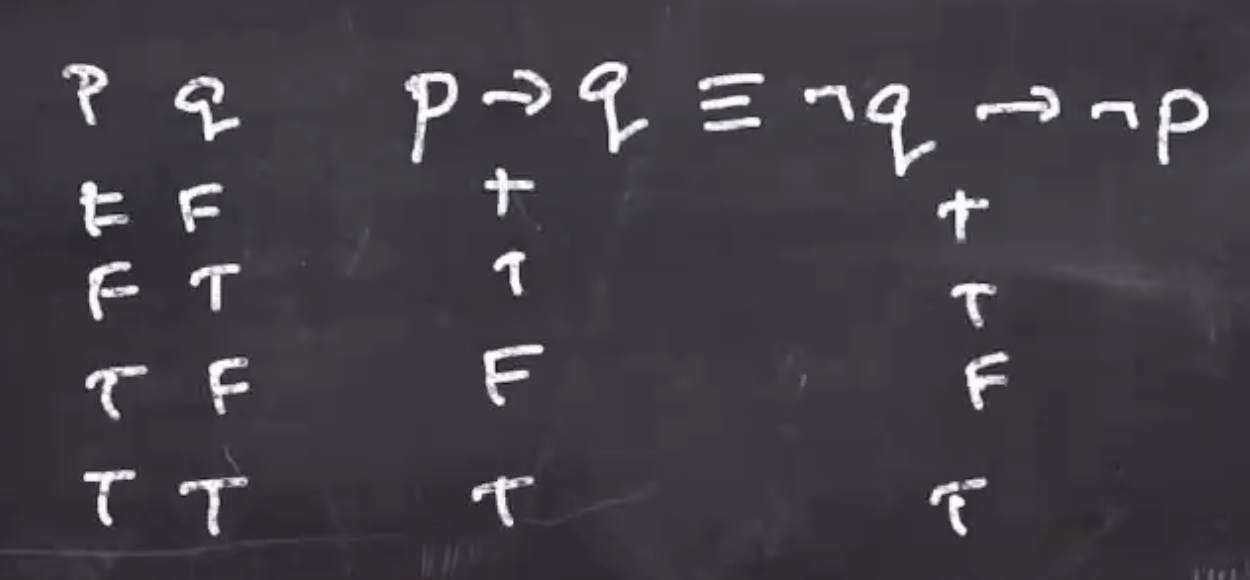 P q p → q ≡ ¬q → ¬p
F F T T
F T T T
T F F F
T T T T